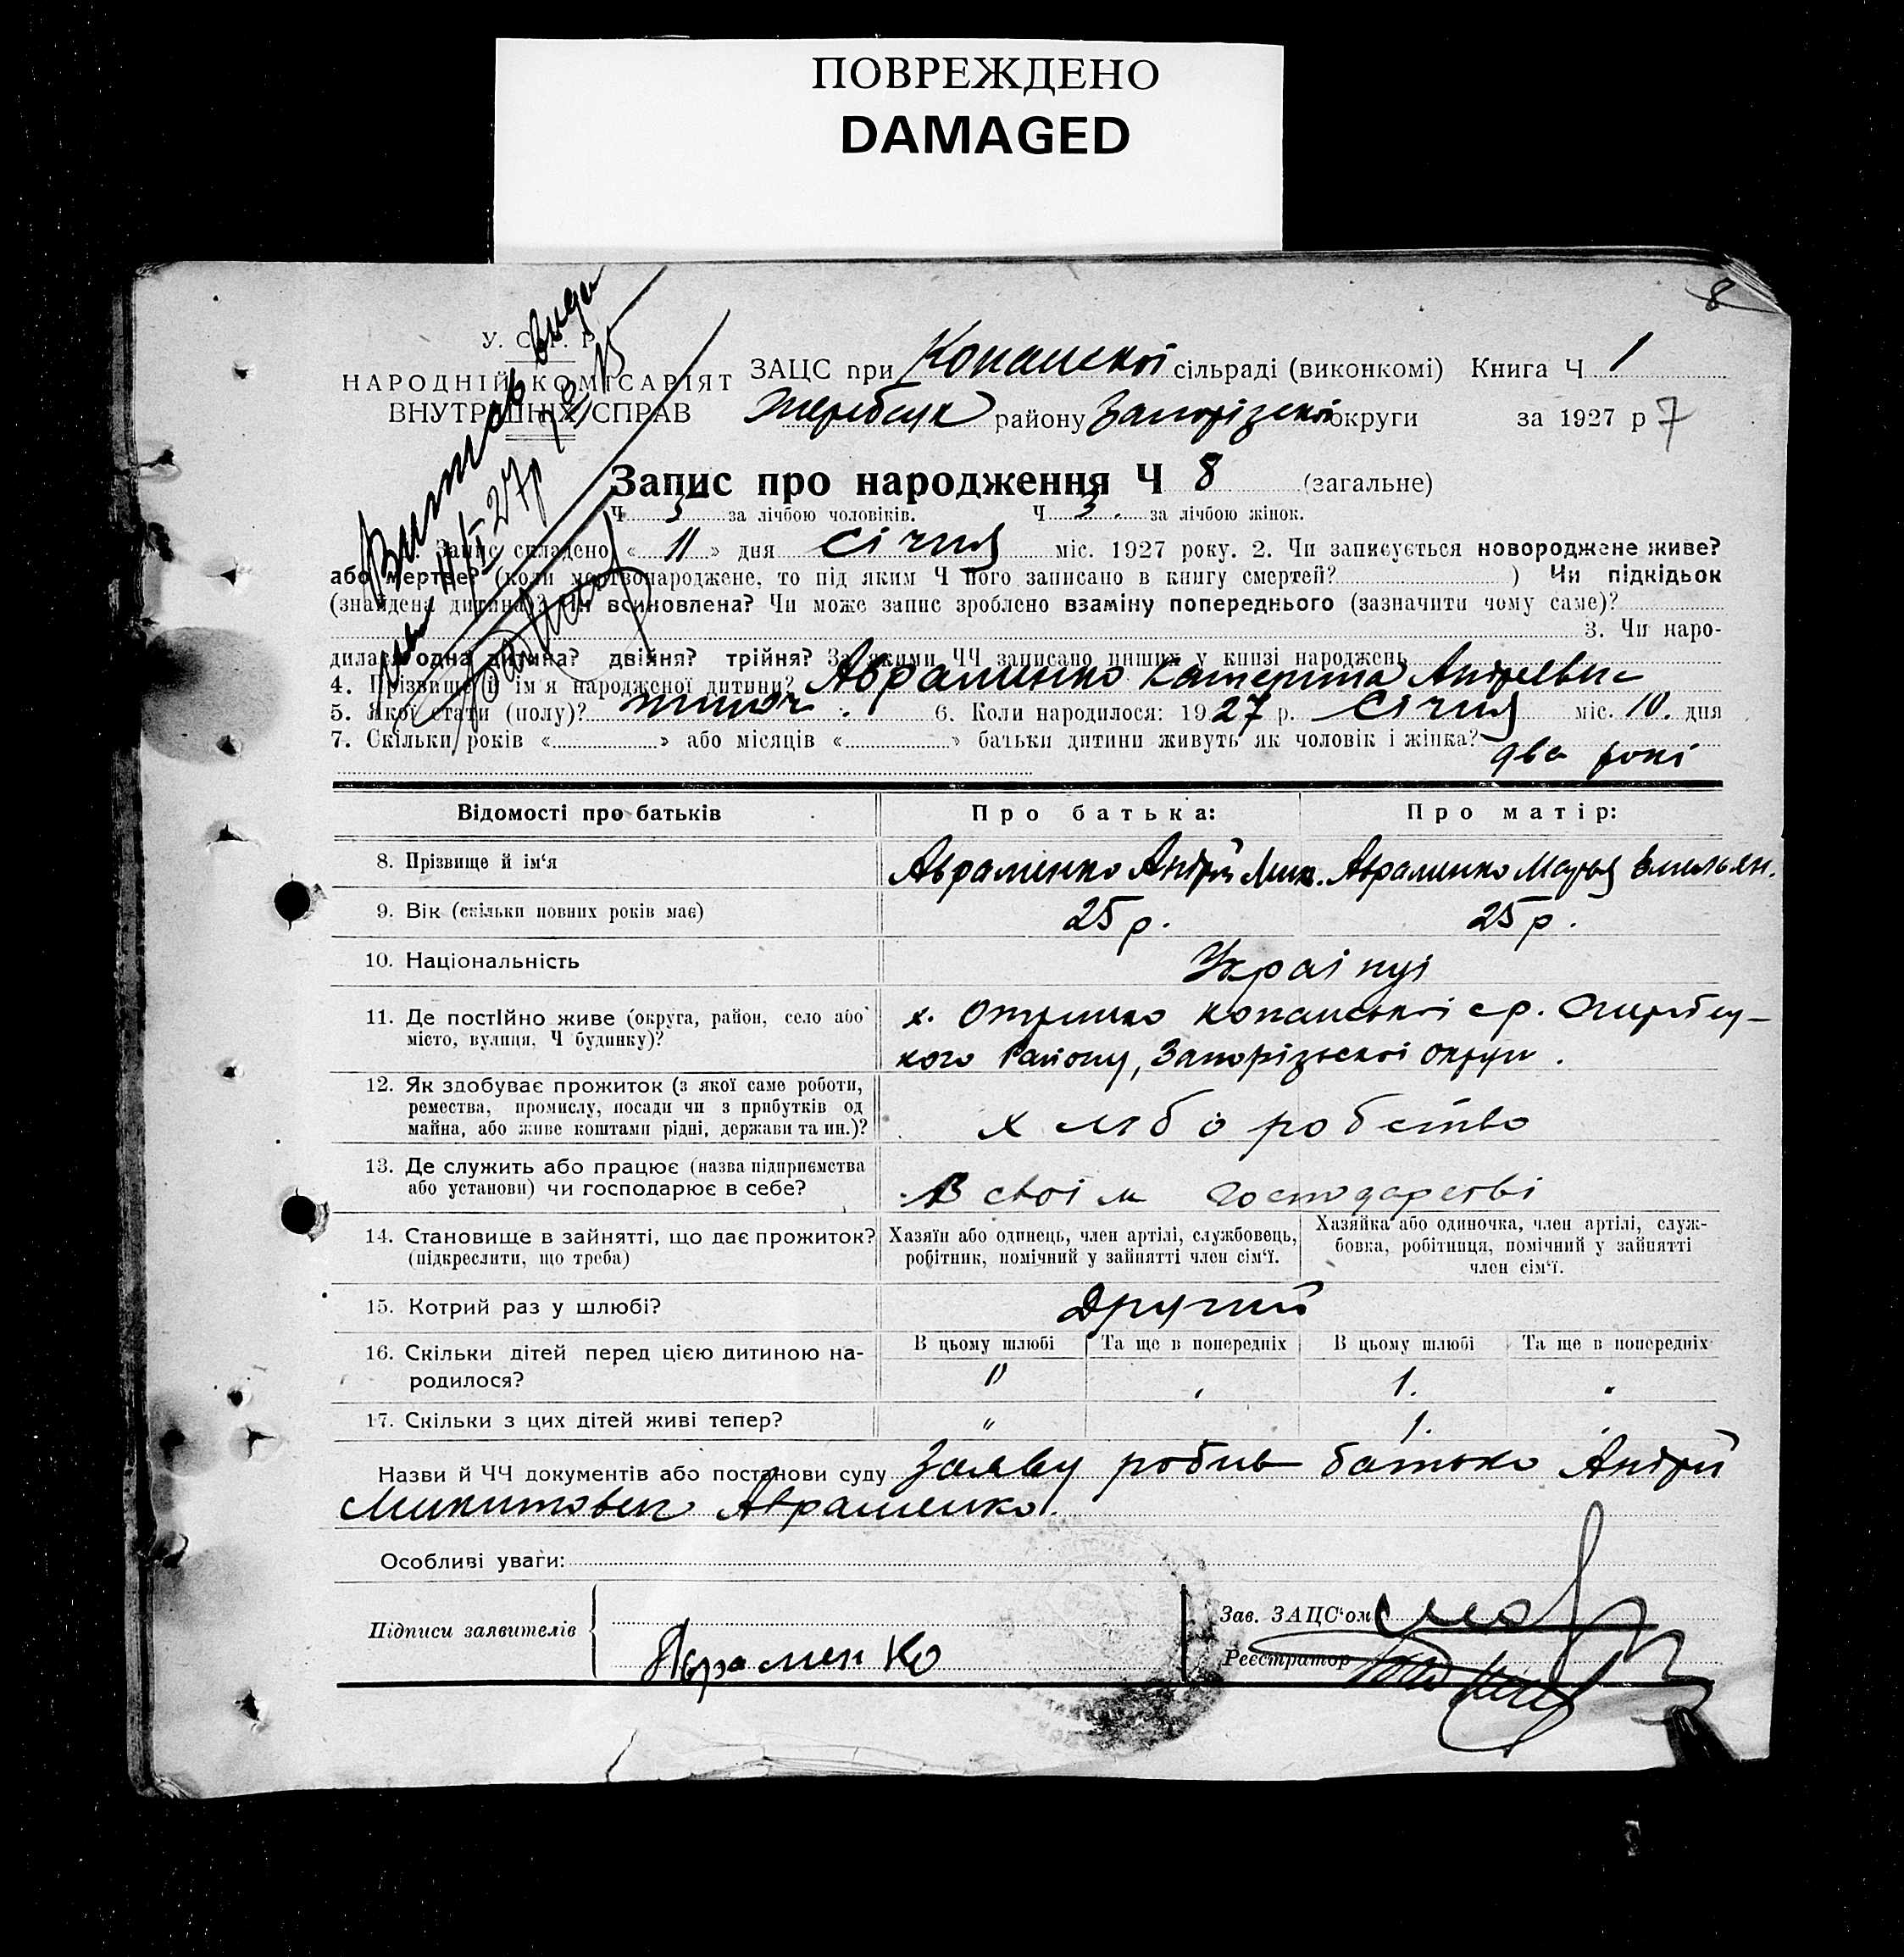 ПОВРЕЖДЕНО
DAMAGED
8
У. С. Р. Р.
НАРОДНІЙ КОМІСАРІЯТ
ВНУТРІШНІХ СПРАВ
ЗАЦС при Копанскої сільраді (виконкомі) Книга Ч 1
Жеребецк району Запорізскої округи за 1927 р 7
Запис про народження Ч 8 (загальне)
Ч 5 за лічбою чоловіків. Ч 3. за лічбою жінок.
Запис складено « 11 » дня січня міс. 1927 року. 2. Чи записується новороджене живе?
або мертве? (коли мертвонароджене, то під яким Ч його записано в книгу смертей? ) Чи підкідьок
(знайдена дитина)? Чи всиновлена? Чи може запис зроблено взаміну попереднього (зазначити чому саме)?
3. Чи наро-
дилась одна дитина? двійня? трійня? За якими ЧЧ записано инших у книзі народжень
4. Прізвище й ім'я народженої дитини? Авраменко Катерина Андреевна
5. Якої стати (полу)? жиноч. 6. Коли народилося: 1927 р. січня міс. 10. дня
7. Скільки років « » або місяців « » батьки дитини живуть як чоловік і жінка?
два рокі
Відомості про батьків Про батька: Про матір:
8. Прізвище й ім'я Авраменко Андрій Мик. Авраменко Марья Емельян.
9. Вік (скільки повних років має) 25 р. 25 р.
10. Національність Українці
11. Де постійно живе (округа, район, село або місто, вулиця, Ч будинку)? х. копанської ср. Жеребец-
кого Району, Запорізьскої округи.
12. Як здобуває прожиток (з якої саме роботи,
ремества, промислу, посади чи з прибутків од
майна, або живе коштами рідні, держави та ин.)? хліборобство
13. Де служить або працює (назва підприємства
або установи) чи господарює в себе? В своїм господарстві
14. Становище в зайнятті, що дає прожиток? (підкреслити, що треба)
Хазяїн або одинець, член артілі, службовець,
робітник, помічний у зайнятті член сім'ї.
Хазяйка або одиночка, член артілі, служ-
бовка, робітниця, помічний у зайнятті
член сім'ї.
15. Котрий раз у шлюбі? Другий
16. Скільки дітей перед цією дитиною на-
родилося?
В цьому шлюбі Та ще в попередніх В цьому шлюбі Та ще в попередніх
" 1. "
17. Скільки з цих дітей живі тепер? " 1.
Назви й ЧЧ документів або постанови суду Заяву робив батько Андрій
Микитович Авраменко.
Особливі уваги:
Підписи заявителів Авраменко
Зав. ЗАЦС'ом
Реєстратор